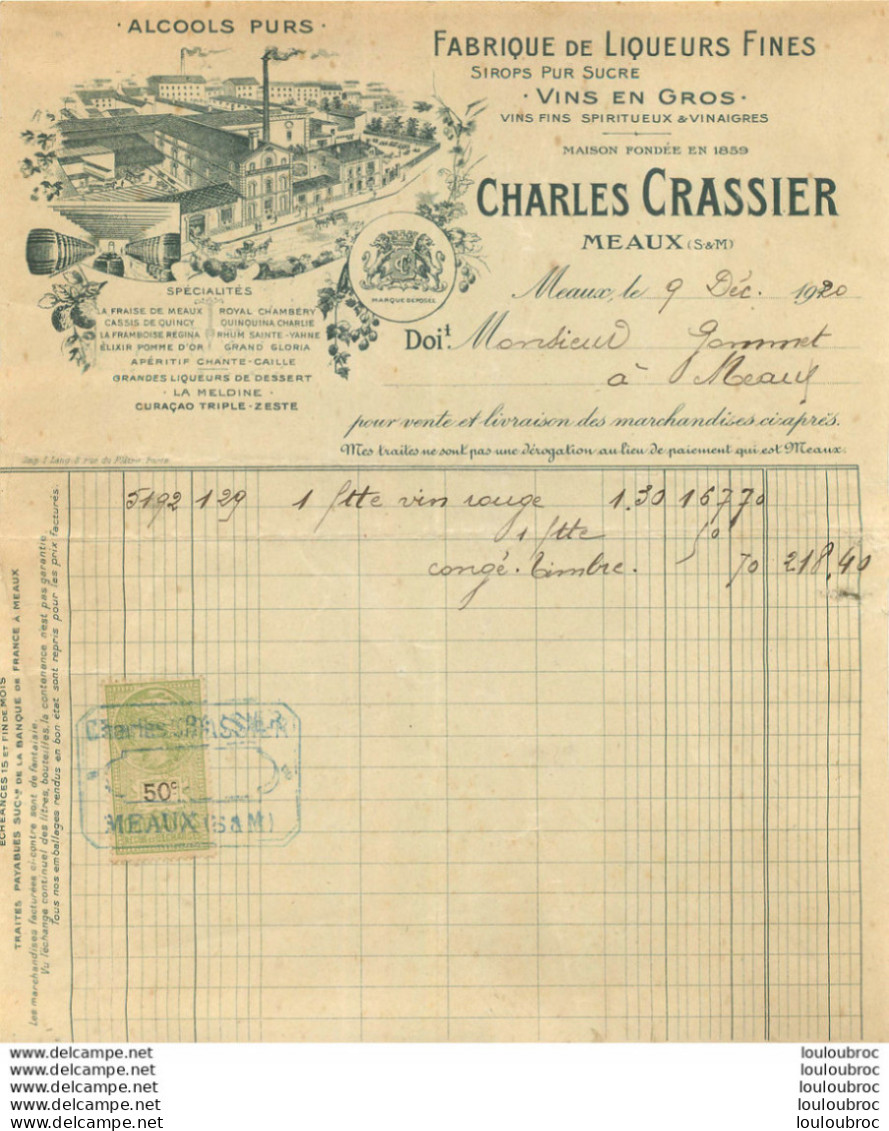 · ALCOOLS PURS ·
FABRIQUE DE LIQUEURS FINES
SIROPS PUR SUCRE
· VINS EN GROS ·
VINS FINS SPIRITUEUX & VINAIGRES
MAISON FONDÉE EN 1859
CHARLES CRASSIER
MEAUX (S&M)
MARQUE DEPOSÉE
SPÉCIALITÉS
LA FRAISE DE MEAUX
CASSIS DE QUINCY
LA FRAMBOISE REGINA
ÉLIXIR POMME D'OR
ROYAL CHAMBÉRY
QUINQUINA CHARLIE
RHUM SAINTE-YAHNE
GRAND GLORIA
APÉRITIF CHANTE-CAILLE
GRANDES LIQUEURS DE DESSERT
· LA MELDINE ·
CURAÇAO TRIPLE-ZESTE
Meaux, le 9 Déc. 1920
Doit. Monsieur
à Meaux
pour vente et livraison des marchandises ci-après.
Mes traites ne sont pas une dérogation au lieu de paiement qui est Meaux.
5192 129 1 ftte vin rouge 1.30 167 70
1 ftte 50
congé. timbre. 70 218,40
ÉCHÉANCES 15 ET FIN DE MOIS
TRAITES PAYABLES SUCle DE LA BANQUE DE FRANCE À MEAUX
Les marchandises facturées ci-contre sont de fantaisie.
Vu l'échange continuel des litres, bouteilles, la contenance n'est pas garantie.
Tous nos emballages rendus en bon état sont repris pour les prix facturés.
Charles CRASSIER
50c
MEAUX (S&M)
www.delcampe.net
www.delcampe.net
www.delcampe.net
www.delcampe.net
www.delcampe.net
louloubroc
louloubroc
louloubroc
louloubroc
louloubroc